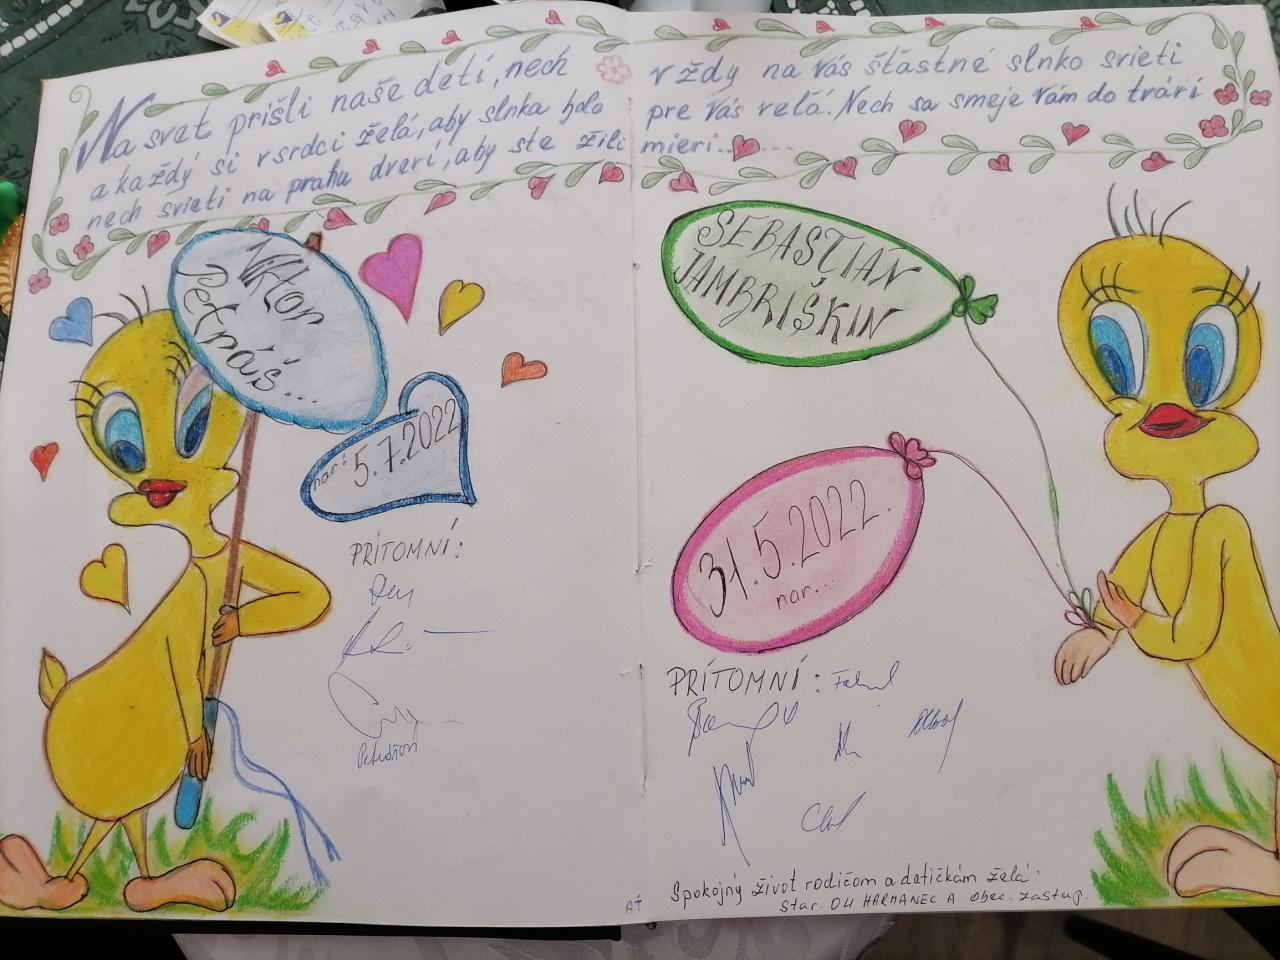 Na svet prišli naše detí, nech vždy na Vás šťastné slnko svieti
a každý si v srdci želá, aby slnka bolo pre Vás veľá. Nech sa smeje Vám do tvárí
nech svieti na prahu dverí, aby ste žili mieri........
Viktor
Petráš...
nar: 5.7.2022
PRÍTOMNÍ:
SEBASTIÁN
JAMBRIŠKIN
31.5.2022.
nar...
PRÍTOMNÍ:
Spokojný život rodičom a detičkám želá:
Star. OÚ HARMANEC A obec. zastup.
AŤ